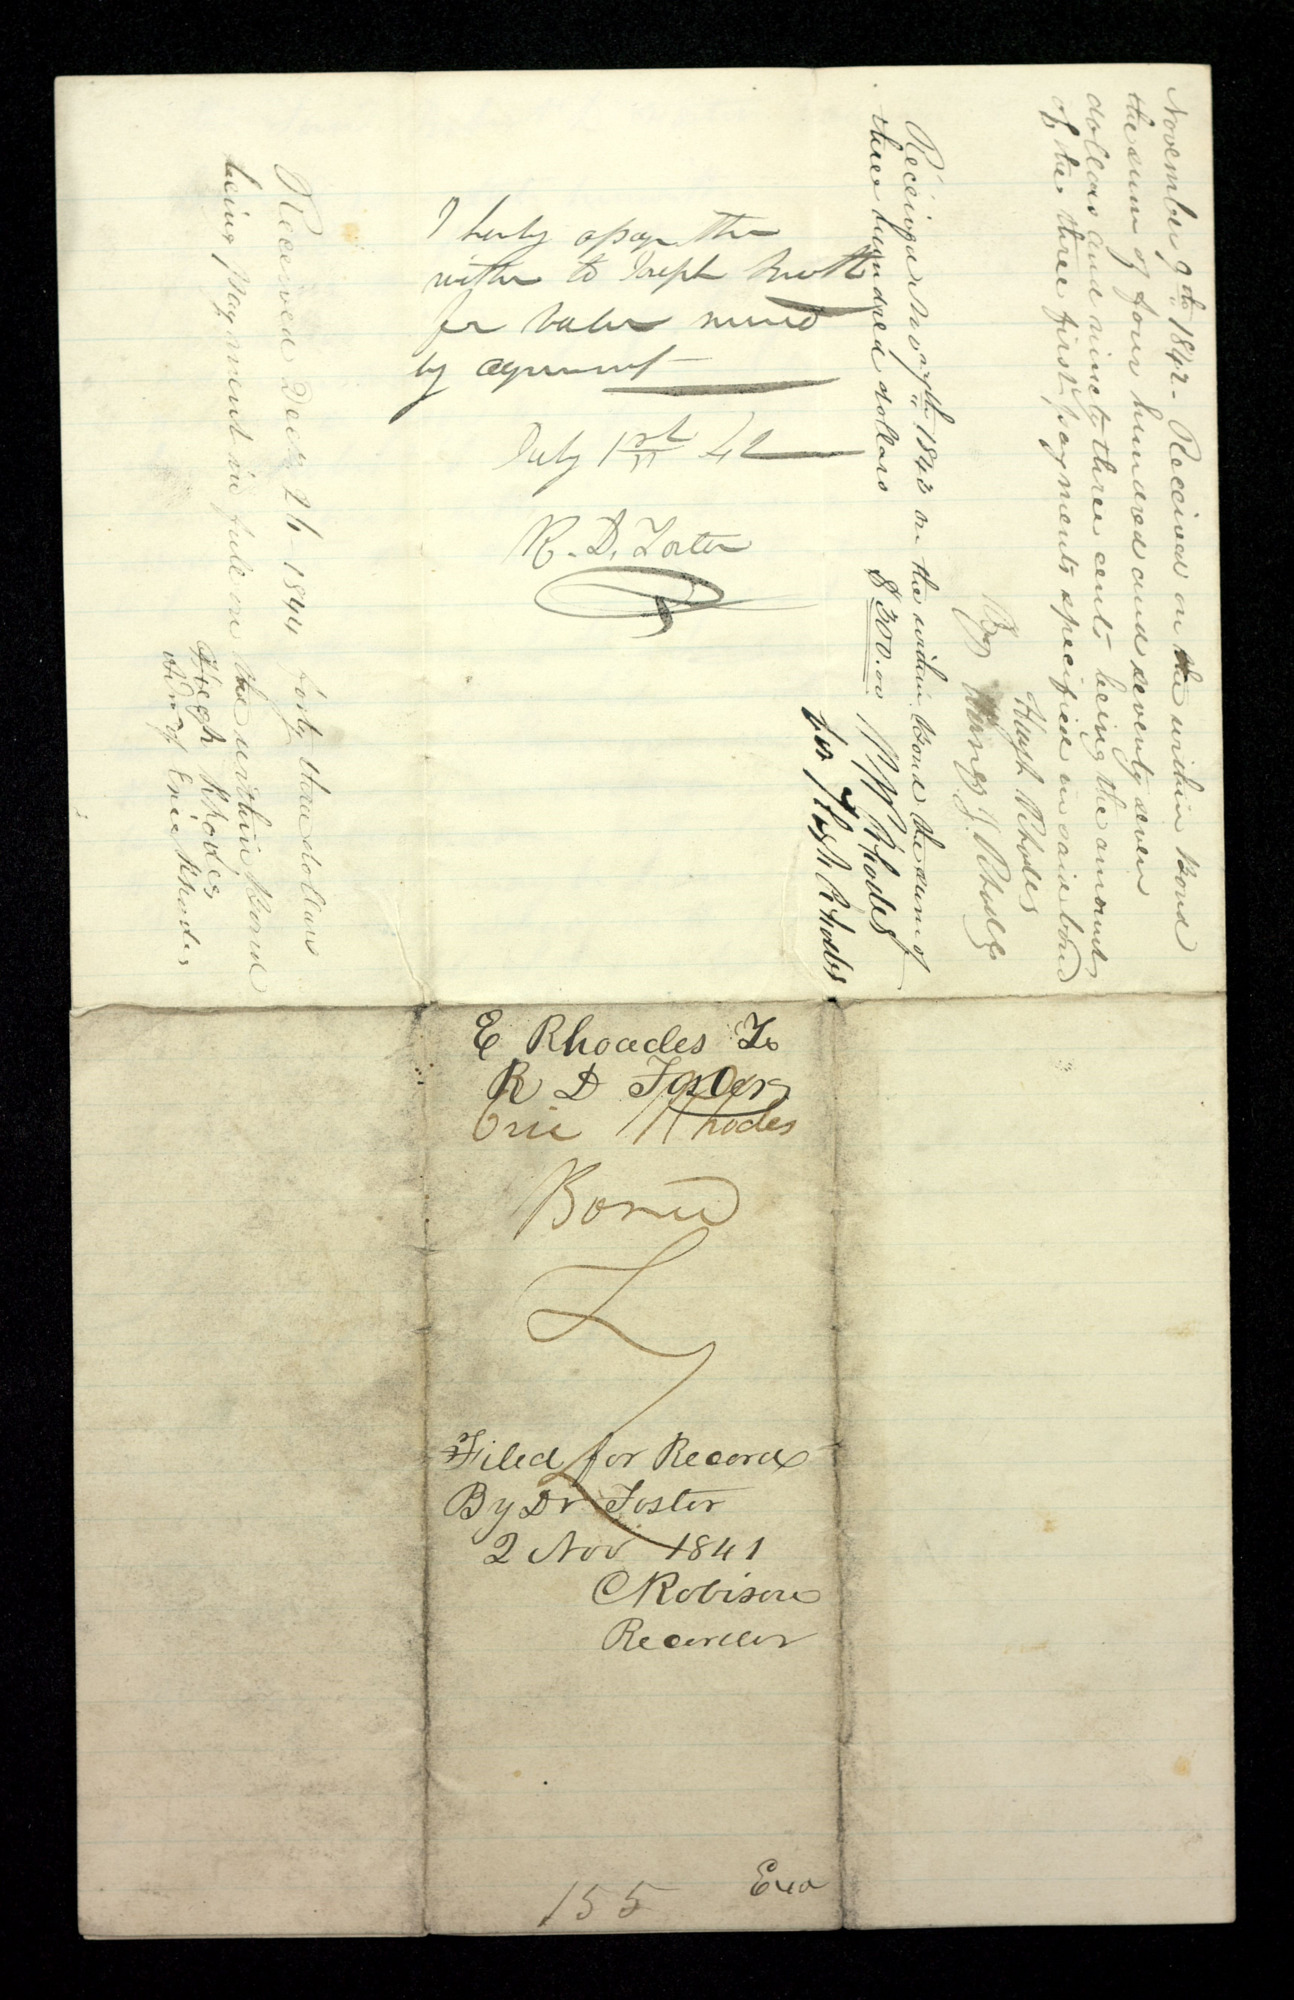 November 9th 1842- Received on the within Bond
the sum of four hundred and seventy seven
dollars and ninety three cents being the amount
of the three first payments specified in said bond
Hugh Rhodes
By J. Rhodes
Received 1843 on the within Bond the sum of
three hundred dollars $300.00 Rhodes
for Hugh Rhodes
I herby assign the
within to Joseph Smith
for value
by agreement
July 1st 42
R. D. Foster
Received Decr 26 1844 forty three dollars
being payment in full on the within Bond
Hugh Rhodes
Adm of Eric Rhodes
E Rhoades To
R D Foster
Eric Rhodes
Bond
Filed for Record
By Dr Foster
2 Nov 1841
C Robison
Recorder
Exa
155